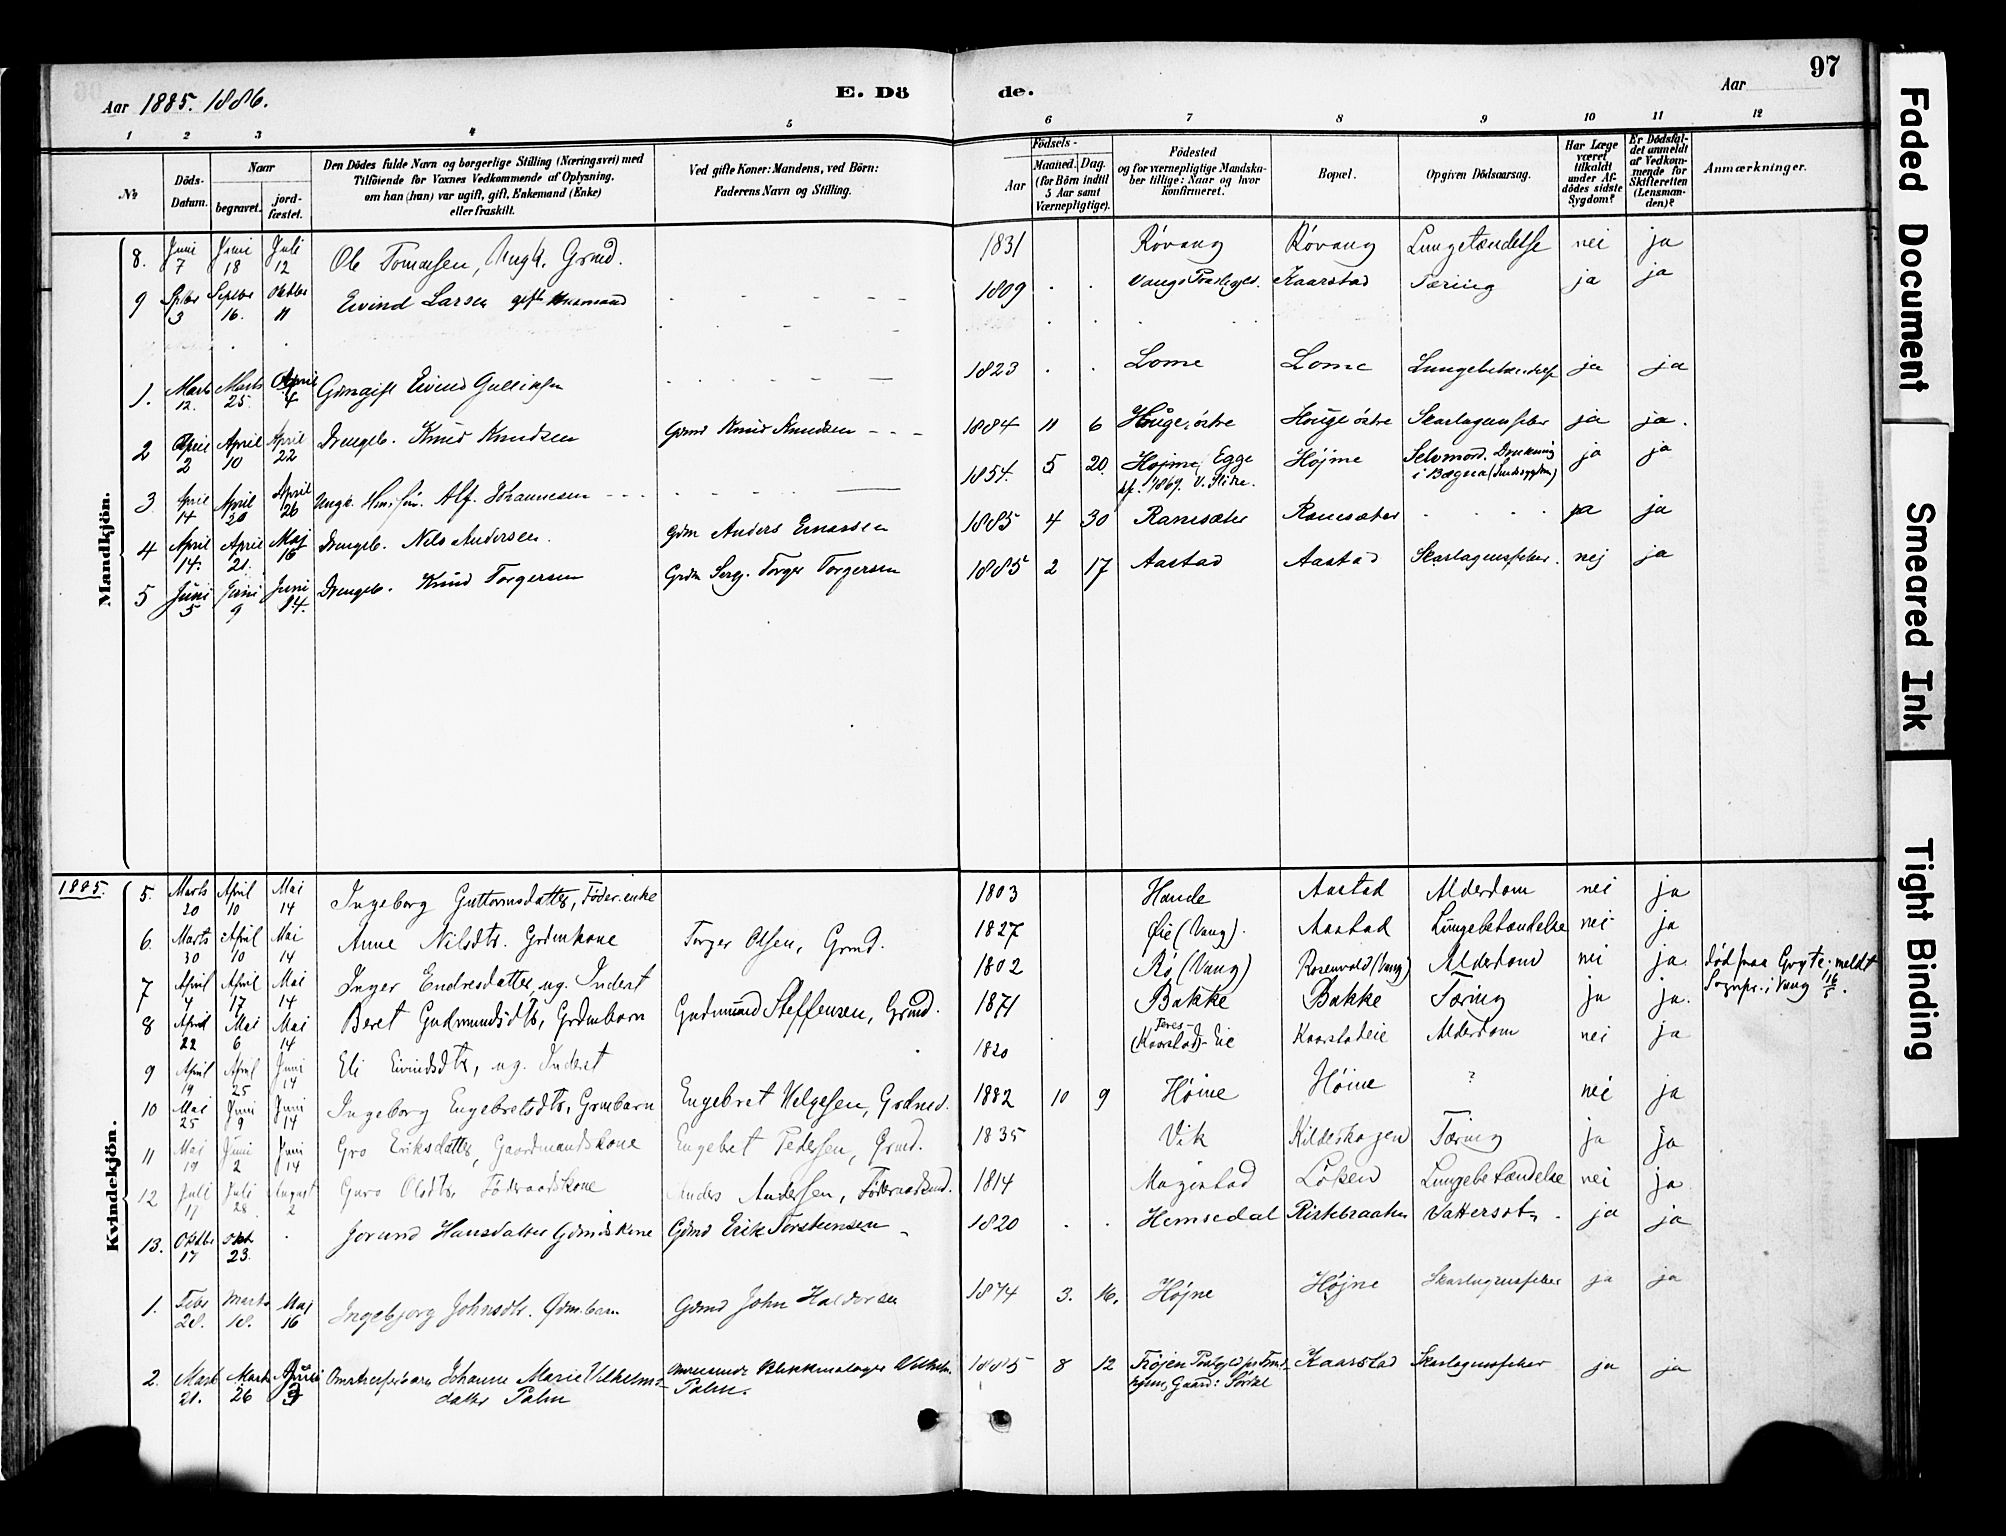 97
Aar 1885. 1886.
E. Dö
de.
Aar
1 2 3 4 5 6 7 8 9 10 11 12
№
Döds-Datum.
Naar
begravet.
jord-fæstet.
Den Dödes fulde Navn og borgerlige Stilling (Næringsvei) med
Tilföiende for Voxnes Vedkommende af Oplysning,
om han (hun) var ugift, gift, Enkemand (Enke)
eller fraskilt.
Ved gifte Koner: Mandens, ved Börn:
Faderens Navn og Stilling.
Födsels-
Aar
Maaned. Dag.
(for Börn indtil
5 Aar samt
Værnepligtige).
Födested
og for værnepligtige Mandska-
ber tillige: Naar og hvor
konfirmeret.
Bopæl.
Opgiven Dödsaarsag.
Har Læge
været
tilkaldt
under Af-
dödes sidste
Sygdom?
Er Dödsfal-
det anmeldt
af Vedkom-
mende for
Skifteretten
(Lensman-
den)?
Anmærkninger.
Mandkjön.
8. Juni 7 Juni 18 Juli 12 Ole Tomassen, Ungk. Grmd. 1831 Røvang Røvang Lungetændelse nei ja
9 Sptbr 3 Septbr 16. Oktbr 11 Eivind Larsen gift Husmand 1809 Vangs Kaarstad Tæring ja ja
1. Marts 12. Marts 25 April 4 Eivind 1823 Lome Lome ja ja
2 April 2 April 10 April 22 Drengeb. Knud Knudsen Gdmd Knud Knudsen 1884 11 6 Houge østre Houge østre Skarlagensfeber ja ja.
3 April 14 April 20 April 26 Ungk. Alf. Johannesen 1854. 5 20. Højme, Egge 1869. V. Slidre. Højme Selvmord. Drukning i Bægna ja ja
4 April 14. April 21. Maj 16 Drengeb. Nils Andersen. Gdm Anders 1885 4 30 Ramsæter Ramsæter ja ja
5 Juni 5 Juni 9 Juni 14. Drengeb. Knud Torgersen Grdm Serg. Torger Torgersen 1885 2 17 Aastad Aastad Skarlagensfeber. nej ja
1885.
Kvindekjön.
5. Marts 20 April 10 Mai 14 Ingeborg Guttormsdatter, Føder.enke 1803 Hande Aastad Alderdom nei ja
6. Marts 30 April 10 Mai 14 Anne Nilsdtr. Grdmkone Torger Olsen, Grmd. 1827 Øie (Vang). Aastad Lungebetændelse nei ja
7 April 4 April 17 Mai 14 Inger Endresdatter, ug. Inderst 1802 Rø (Vang) Rosenvold (Vang) Alderdom nei ja død paa Gryte. meldt Sognpr. i Vang 16/5.
8 April 22 Mai 6 Mai 14 Beret Gudmundsdtr, Grdmbarn Gudmund Steffensen, Grmd. 1871 Bakke Bakke Tæring ja ja.
9 April 19 April 25 Juni 14 Eli Eivindsdtr, ug. Inderst 1820 (Kaarstad)-Eie Kaarstadeie Alderdom nei ja
10 Mai 25 Juni 9 Juni 14 Ingeborg Engebretsdtr, Grmbarn Engebret Helgesen, Grdmd. 1882 10 9 Høine Høine ? nei ja
11 Mai 19 Juni 2 Juni 14 Gro Eriksdatter, Gaardmandskone Engebret Pedersen, Grmd. 1835 Vik Kildeskogen Tæring ja ja
12 Juli 17 Juli 28 August 2 Guro Olsdtr. Föderaadskone Anders Andersen, Föderaadsmd. 1814 Magistad Løken Lungebetændelse nei ja
13. Oktbr 17 Okt 23. Jorund Hansdatter Gdmdskone Gdmd Erik Torstensen 1820 Hemsedal Ristebraaten Vattersot. ja ja
1. Febr 28. Marts 18. Maj 16 Ingebjorg Johnsdtr. Gdmbarn Gdmd John Haldorsen 1874 3. 16. Højne Højne Skarlagensfeber ja ja
2. Marts 21. Marts 26 April 3 Omstreiferbarn Johanne Marie Vilhelms-datter Palm Omreisende Vilhelm Palm. 1885 8 12 Gaard: Kaarstad Skarlagensfeber ja ja
Faded Document
Smeared Ink
Tight Binding